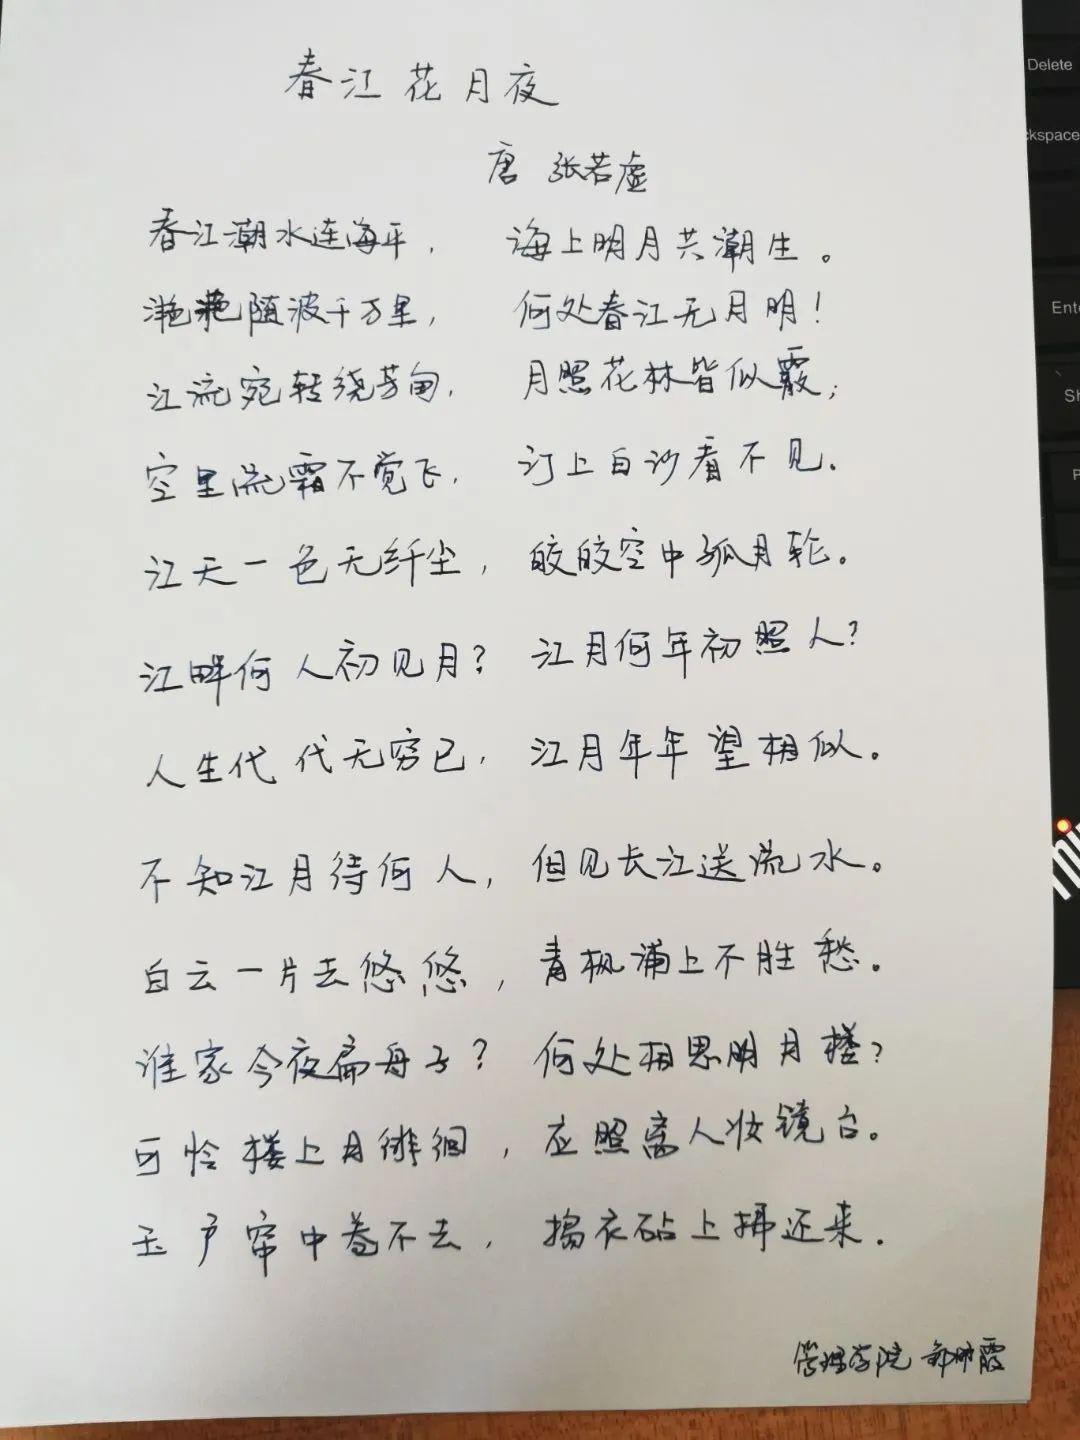 春江花月夜
唐 张若虚
春江潮水连海平, 海上明月共潮生。
滟滟随波千万里, 何处春江无月明!
江流宛转绕芳甸, 月照花林皆似霰;
空里流霜不觉飞, 汀上白沙看不见.
江天一色无纤尘, 皎皎空中孤月轮。
江畔何人初见月? 江月何年初照人?
人生代代无穷已, 江月年年望相似。
不知江月待何人, 但见长江送流水。
白云一片去悠悠, 青枫浦上不胜愁。
谁家今夜扁舟子? 何处相思明月楼?
可怜楼上月徘徊, 应照离人妆镜台。
玉户帘中卷不去, 捣衣砧上拂还来.
管理学院
Delete
kspace
Ente
Sh
P